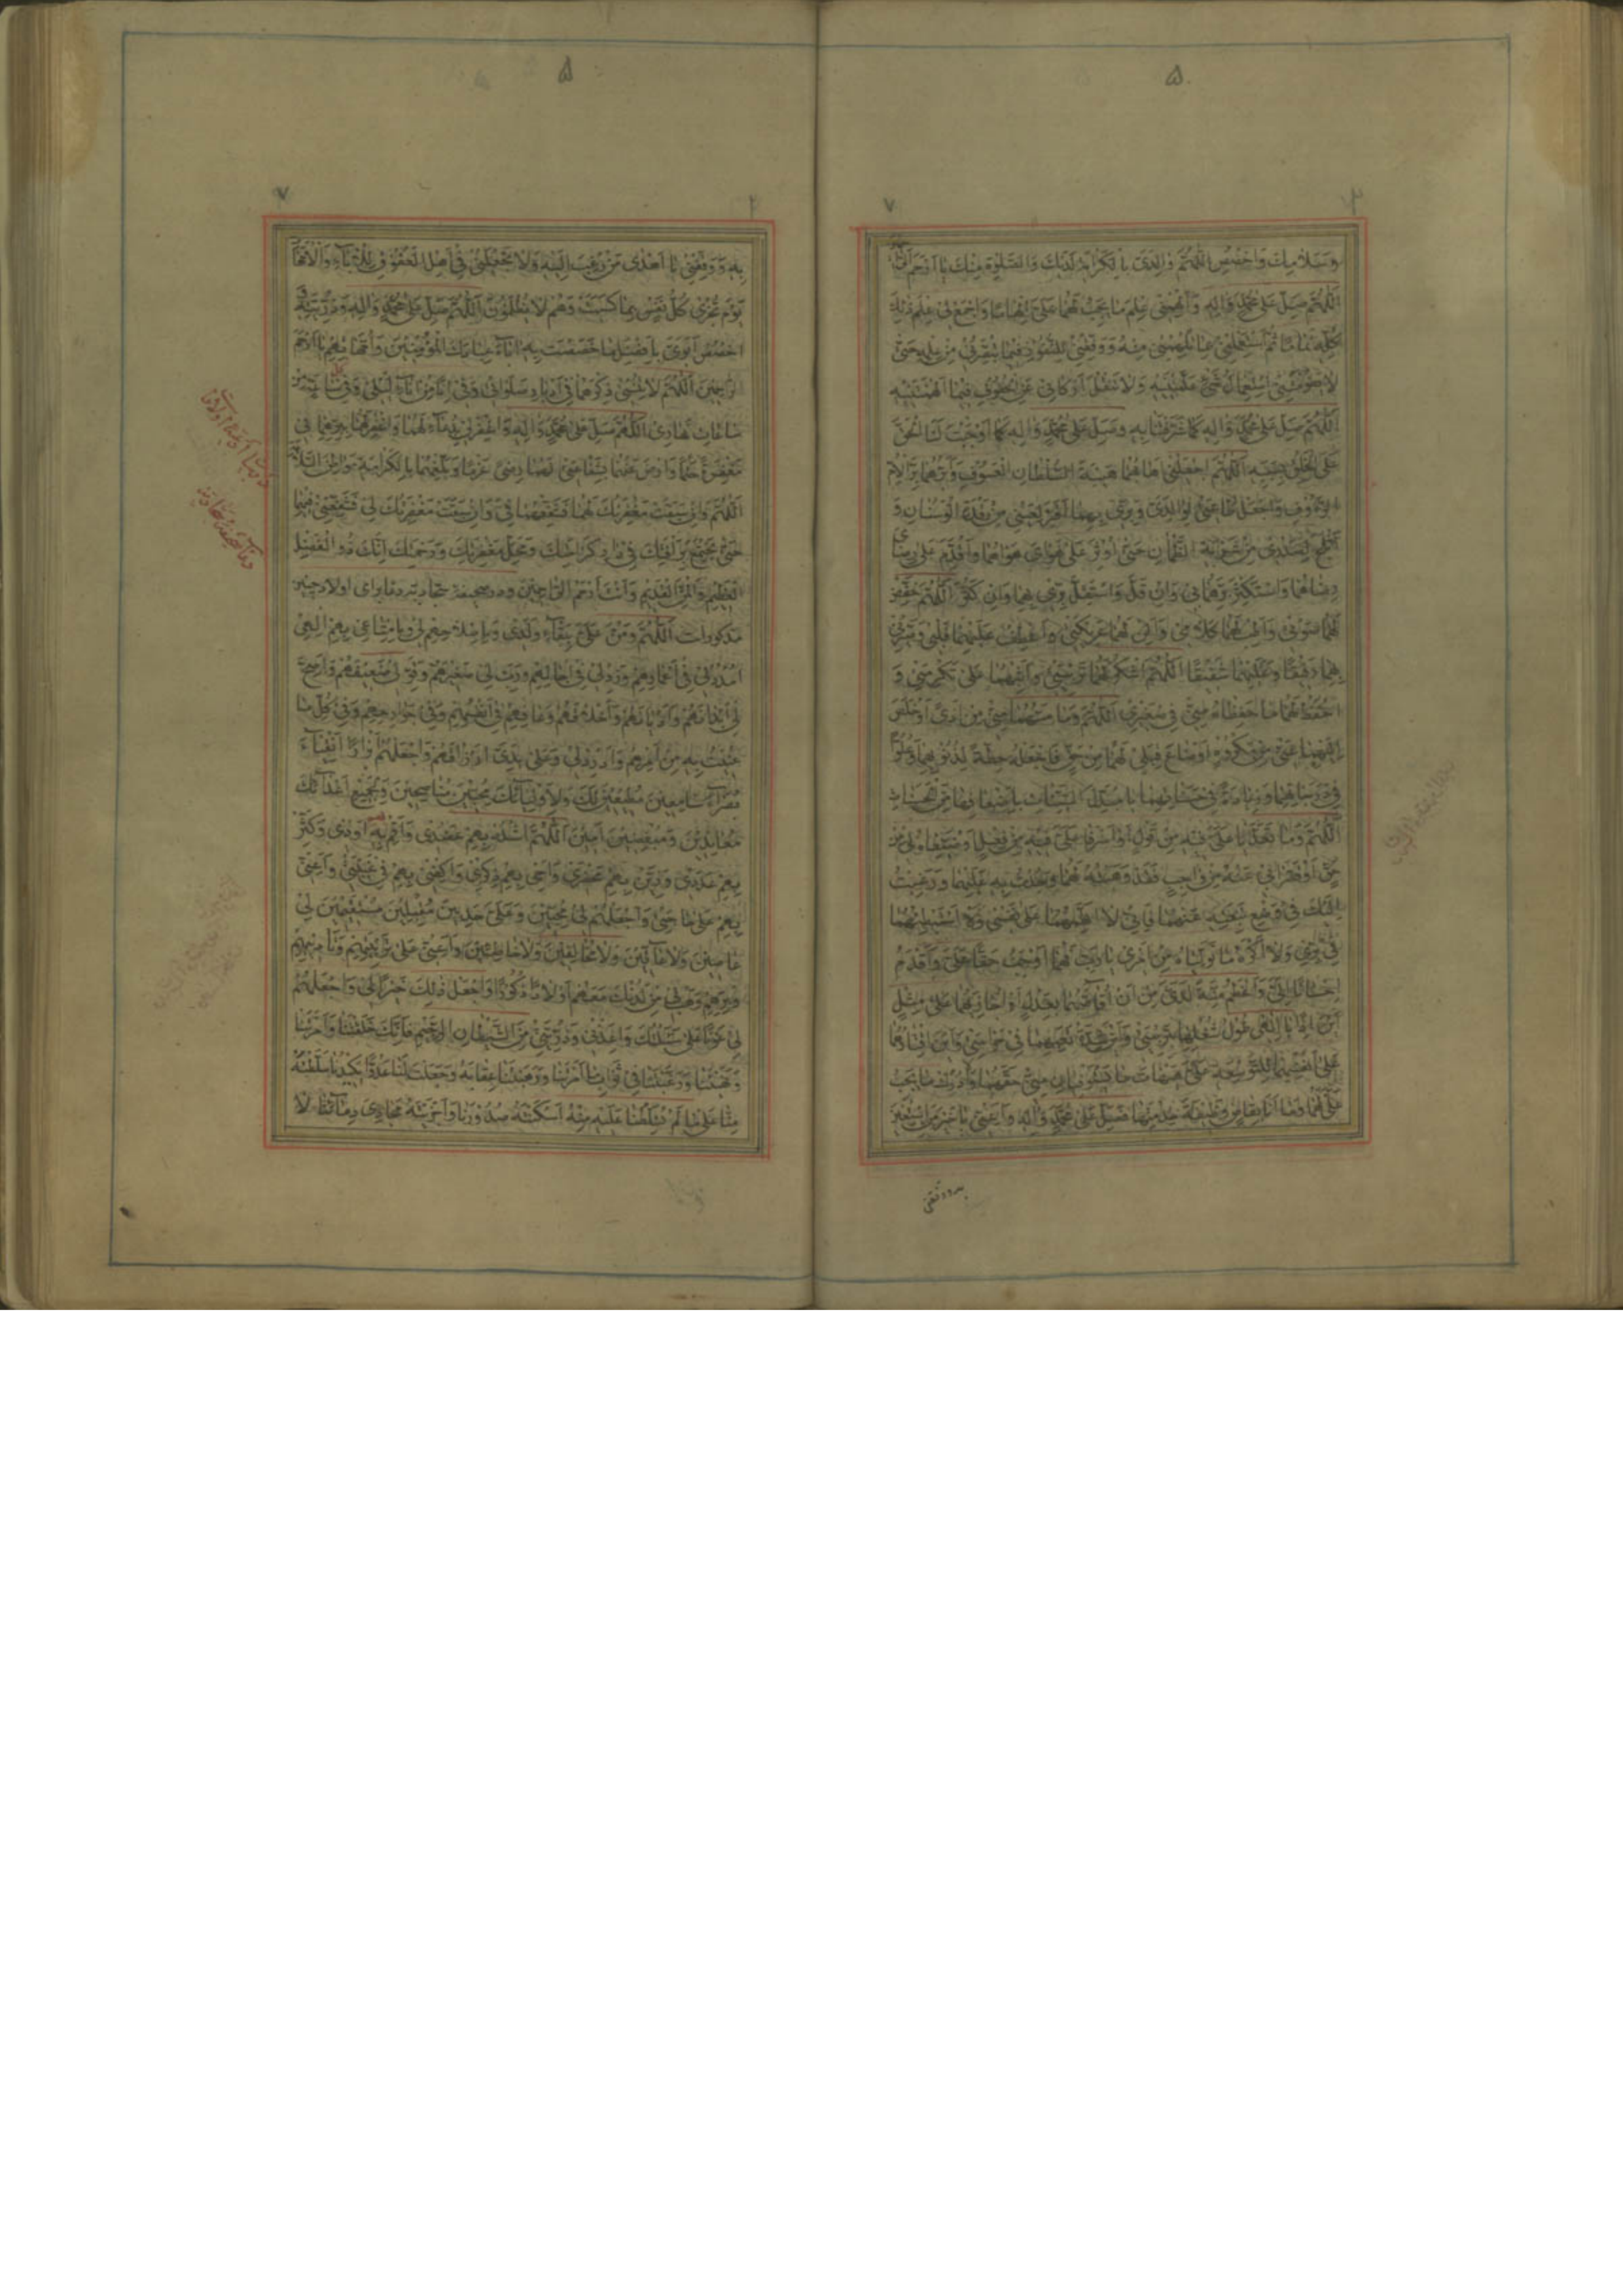 وَسَلَامِكَ وَاخْصُصِ اللّٰهُمَّ وَالِدَيَّ بِالْكَرَامَةِ لَدَيْكَ وَالصَّلٰوةِ مِنْكَ يَا اَرْحَمَ
اَللّٰهُمَّ صَلِّ عَلٰى مُحَمَّدٍ وَاٰلِهِ وَاَلْهِمْنِي عِلْمَ مَا يَجِبُ لَهُمَا عَلَيَّ اِلْهَامًا وَاجْمَعْ لِي عِلْمَ ذٰلِكَ
كُلِّهِ تَمَامًا ثُمَّ اسْتَعْمِلْنِي بِمَا تُلْهِمُنِي مِنْهُ وَوَفِّقْنِي لِلنُّفُوذِ فِيمَا تُبَصِّرُنِي مِنْ عِلْمِهِ حَتّٰى
لَا يَفُوتَنِي اسْتِعْمَالُ شَيْءٍ عَلَّمْتَنِيهِ وَلَا تَثْقُلَ اَرْكَانِي عَنِ الْحُفُوفِ فِيمَا اَلْهَمْتَنِيهِ
اَللّٰهُمَّ صَلِّ عَلٰى مُحَمَّدٍ وَاٰلِهِ كَمَا شَرَّفْتَنَا بِهِ وَصَلِّ عَلٰى مُحَمَّدٍ وَاٰلِهِ كَمَا اَوْجَبْتَ لَنَا الْحَقَّ
عَلَى الْخَلْقِ بِسَبَبِهِ اَللّٰهُمَّ اجْعَلْنِي اَهَابُهُمَا هَيْبَةَ السُّلْطَانِ الْعَسُوفِ وَاَبَرُّهُمَا بِرَّ الْاُمِّ
الرَّؤُفِ وَاجْعَلْ طَاعَتِي لِوَالِدَيَّ وَبِرِّي بِهِمَا اَقَرَّ لِعَيْنِي مِنْ رَقْدَةِ الْوَسْنَانِ وَ
اَثْلَجَ لِصَدْرِي مِنْ شَرْبَةِ الظَّمْاٰنِ حَتّٰى اُوثِرَ عَلٰى هَوَايَ هَوَاهُمَا وَاُقَدِّمَ عَلٰى رِضَايَ
رِضَاهُمَا وَاَسْتَكْثِرَ بِرَّهُمَا بِي وَاِنْ قَلَّ وَاَسْتَقِلَّ بِرِّي بِهِمَا وَاِنْ كَثُرَ اَللّٰهُمَّ خَفِّضْ
لَهُمَا صَوْتِي وَاَطِبْ لَهُمَا كَلَامِي وَاَلِنْ لَهُمَا عَرِيكَتِي وَاعْطِفْ عَلَيْهِمَا قَلْبِي وَصَيِّرْنِي
بِهِمَا رَفِيقًا وَعَلَيْهِمَا شَفِيقًا اَللّٰهُمَّ اشْكُرْ لَهُمَا تَرْبِيَتِي وَاَثِبْهُمَا عَلٰى تَكْرِمَتِي وَ
احْفَظْ لَهُمَا مَا حَفِظَاهُ مِنِّي فِي صِغَرِي اَللّٰهُمَّ وَمَا مَسَّهُمَا مِنِّي مِنْ اَذًى اَوْ خَلَصَ
اِلَيْهِمَا عَنِّي مِنْ مَكْرُوهٍ اَوْ ضَاعَ قِبَلِي لَهُمَا مِنْ حَقٍّ فَاجْعَلْهُ حِطَّةً لِذُنُوبِهِمَا وَعُلُوًّا
فِي دَرَجَاتِهِمَا وَزِيَادَةً فِي حَسَنَاتِهِمَا يَا مُبَدِّلَ السَّيِّئَاتِ بِاَضْعَافِهَا مِنَ الْحَسَنَاتِ
اَللّٰهُمَّ وَمَا تَعَدَّيَا عَلَيَّ فِيهِ مِنْ قَوْلٍ اَوْ اَسْرَفَا عَلَيَّ فِيهِ مِنْ فِعْلٍ اَوْ ضَيَّعَاهُ لِي مِنْ
حَقٍّ اَوْ قَصَّرَا بِي عَنْهُ مِنْ وَاجِبٍ فَقَدْ وَهَبْتُهُ لَهُمَا وَجُدْتُ بِهِ عَلَيْهِمَا وَرَغِبْتُ
اِلَيْكَ فِي وَضْعِ تَبِعَتِهِ عَنْهُمَا فَاِنِّي لَا اَتَّهِمُهُمَا عَلٰى نَفْسِي وَلَا اَسْتَبْطِئُهُمَا
فِي بِرِّي وَلَا اَكْرَهُ مَا تَوَلَّيَاهُ مِنْ اَمْرِي يَا رَبِّ فَهُمَا اَوْجَبُ حَقًّا عَلَيَّ وَاَقْدَمُ
اِحْسَانًا اِلَيَّ وَاَعْظَمُ مِنَّةً لَدَيَّ مِنْ اَنْ اُقَاصَّهُمَا بِعَدْلٍ اَوْ اُجَازِيَهُمَا عَلٰى مِثْلٍ
اَيْنَ اِذًا يَا اِلٰهِي طُولُ شُغْلِهِمَا بِتَرْبِيَتِي وَاَيْنَ شِدَّةُ تَعَبِهِمَا فِي حِرَاسَتِي وَاَيْنَ اِقْتَارُهُمَا
عَلٰى اَنْفُسِهِمَا لِلتَّوْسِعَةِ عَلَيَّ هَيْهَاتَ مَا يَسْتَوْفِيَانِ مِنِّي حَقَّهُمَا وَلَا اُدْرِكُ مَا يَجِبُ
عَلَيَّ لَهُمَا وَمَا اَنَا بِقَاضٍ وَظِيفَةَ خِدْمَتِهِمَا فَصَلِّ عَلٰى مُحَمَّدٍ وَاٰلِهِ وَاَعِنِّي يَا خَيْرَ مَنِ اسْتُعِينَ
به ووفقنی
۵
بِهِ وَوَفِّقْنِي يَا اَهْدٰى مَنْ رُغِبَ اِلَيْهِ وَلَا تَجْعَلْنِي فِي اَهْلِ الْعُقُوقِ لِلْاٰبَاءِ وَالْاُمَّهَاتِ
يَوْمَ تُجْزٰى كُلُّ نَفْسٍ بِمَا كَسَبَتْ وَهُمْ لَا يُظْلَمُونَ اَللّٰهُمَّ صَلِّ عَلٰى مُحَمَّدٍ وَاٰلِهِ وَذُرِّيَّتِهِ وَ
اخْصُصْ اَبَوَيَّ بِاَفْضَلِ مَا خَصَصْتَ بِهِ اٰبَاءَ عِبَادِكَ الْمُؤْمِنِينَ وَاُمَّهَاتِهِمْ يَا اَرْحَمَ
الرَّاحِمِينَ اَللّٰهُمَّ لَا تُنْسِنِي ذِكْرَهُمَا فِي اَدْبَارِ صَلَوَاتِي وَفِي اِنًا مِنْ اٰنَاءِ لَيْلِي وَفِي كُلِّ سَاعَةٍ مِنْ
سَاعَاتِ نَهَارِي اَللّٰهُمَّ صَلِّ عَلٰى مُحَمَّدٍ وَاٰلِهِ وَاغْفِرْ لِي بِدُعَائِي لَهُمَا وَاغْفِرْ لَهُمَا بِبِرِّهِمَا بِي
مَغْفِرَةً حَتْمًا وَارْضَ عَنْهُمَا بِشَفَاعَتِي لَهُمَا رِضًى عَزْمًا وَبَلِّغْهُمَا بِالْكَرَامَةِ مَوَاطِنَ السَّلَامَةِ
اَللّٰهُمَّ وَاِنْ سَبَقَتْ مَغْفِرَتُكَ لَهُمَا فَشَفِّعْهُمَا فِيَّ وَاِنْ سَبَقَتْ مَغْفِرَتُكَ لِي فَشَفِّعْنِي فِيهِمَا
حَتّٰى نَجْتَمِعَ بِرَأْفَتِكَ فِي دَارِ كَرَامَتِكَ وَمَحَلِّ مَغْفِرَتِكَ وَرَحْمَتِكَ اِنَّكَ ذُو الْفَضْلِ
الْعَظِيمِ وَالْمَنِّ الْقَدِيمِ وَاَنْتَ اَرْحَمُ الرَّاحِمِينَ ودر صحیفه سجادیه دعا برای اولاد چنین
مذکورات اَللّٰهُمَّ وَمُنَّ عَلَيَّ بِبَقَاءِ وُلْدِي وَبِاِصْلَاحِهِمْ لِي وَبِاِمْتَاعِي بِهِمْ اِلٰهِي
امْدُدْ لِي فِي اَعْمَارِهِمْ وَزِدْ لِي فِي اٰجَالِهِمْ وَرَبِّ لِي صَغِيرَهُمْ وَقَوِّ لِي ضَعِيفَهُمْ وَاَصِحَّ
لِي اَبْدَانَهُمْ وَاَدْيَانَهُمْ وَاَخْلَاقَهُمْ وَعَافِهِمْ فِي اَنْفُسِهِمْ وَفِي جَوَارِحِهِمْ وَفِي كُلِّ مَا
عُنِيتُ بِهِ مِنْ اَمْرِهِمْ وَاَدْرِرْ لِي وَعَلٰى يَدِي اَرْزَاقَهُمْ وَاجْعَلْهُمْ اَبْرَارًا اَتْقِيَاءَ
بُصَرَاءَ سَامِعِينَ مُطِيعِينَ لَكَ وَلِاَوْلِيَائِكَ مُحِبِّينَ مُنَاصِحِينَ وَلِجَمِيعِ اَعْدَائِكَ
مُعَانِدِينَ وَمُبْغِضِينَ اٰمِينَ اَللّٰهُمَّ اشْدُدْ بِهِمْ عَضُدِي وَاَقِمْ بِهِمْ اَوَدِي وَكَثِّرْ
بِهِمْ عَدَدِي وَزَيِّنْ بِهِمْ مَحْضَرِي وَاَحْيِ بِهِمْ ذِكْرِي وَاكْفِنِي بِهِمْ فِي غَيْبَتِي وَاَعِنِّي
بِهِمْ عَلٰى حَاجَتِي وَاجْعَلْهُمْ لِي مُحِبِّينَ وَعَلَيَّ حَدِبِينَ مُقْبِلِينَ مُسْتَقِيمِينَ لِي
عَاصِينَ وَلَا عَاقِّينَ وَلَا مُخَالِفِينَ وَلَا خَاطِئِينَ وَاَعِنِّي عَلٰى تَرْبِيَتِهِمْ وَتَأْدِيبِهِمْ
وَبِرِّهِمْ وَهَبْ لِي مِنْ لَدُنْكَ مَعَهُمْ اَوْلَادًا ذُكُورًا وَاجْعَلْ ذٰلِكَ خَيْرًا لِي وَاجْعَلْهُمْ
لِي عَوْنًا عَلٰى مَا سَئَلْتُكَ وَاَعِذْنِي وَذُرِّيَّتِي مِنَ الشَّيْطَانِ الرَّجِيمِ فَاِنَّكَ خَلَقْتَنَا وَاَمَرْتَنَا
وَنَهَيْتَنَا وَرَغَّبْتَنَا فِي ثَوَابِ مَا اَمَرْتَنَا وَرَهَّبْتَنَا عِقَابَهُ وَجَعَلْتَ لَنَا عَدُوًّا يَكِيدُنَا سَلَّطْتَهُ
مِنَّا عَلٰى مَا لَمْ تُسَلِّطْنَا عَلَيْهِ مِنْهُ اَسْكَنْتَهُ صُدُورَنَا وَاَجْرَيْتَهُ مَجَارِيَ دِمَائِنَا لَا